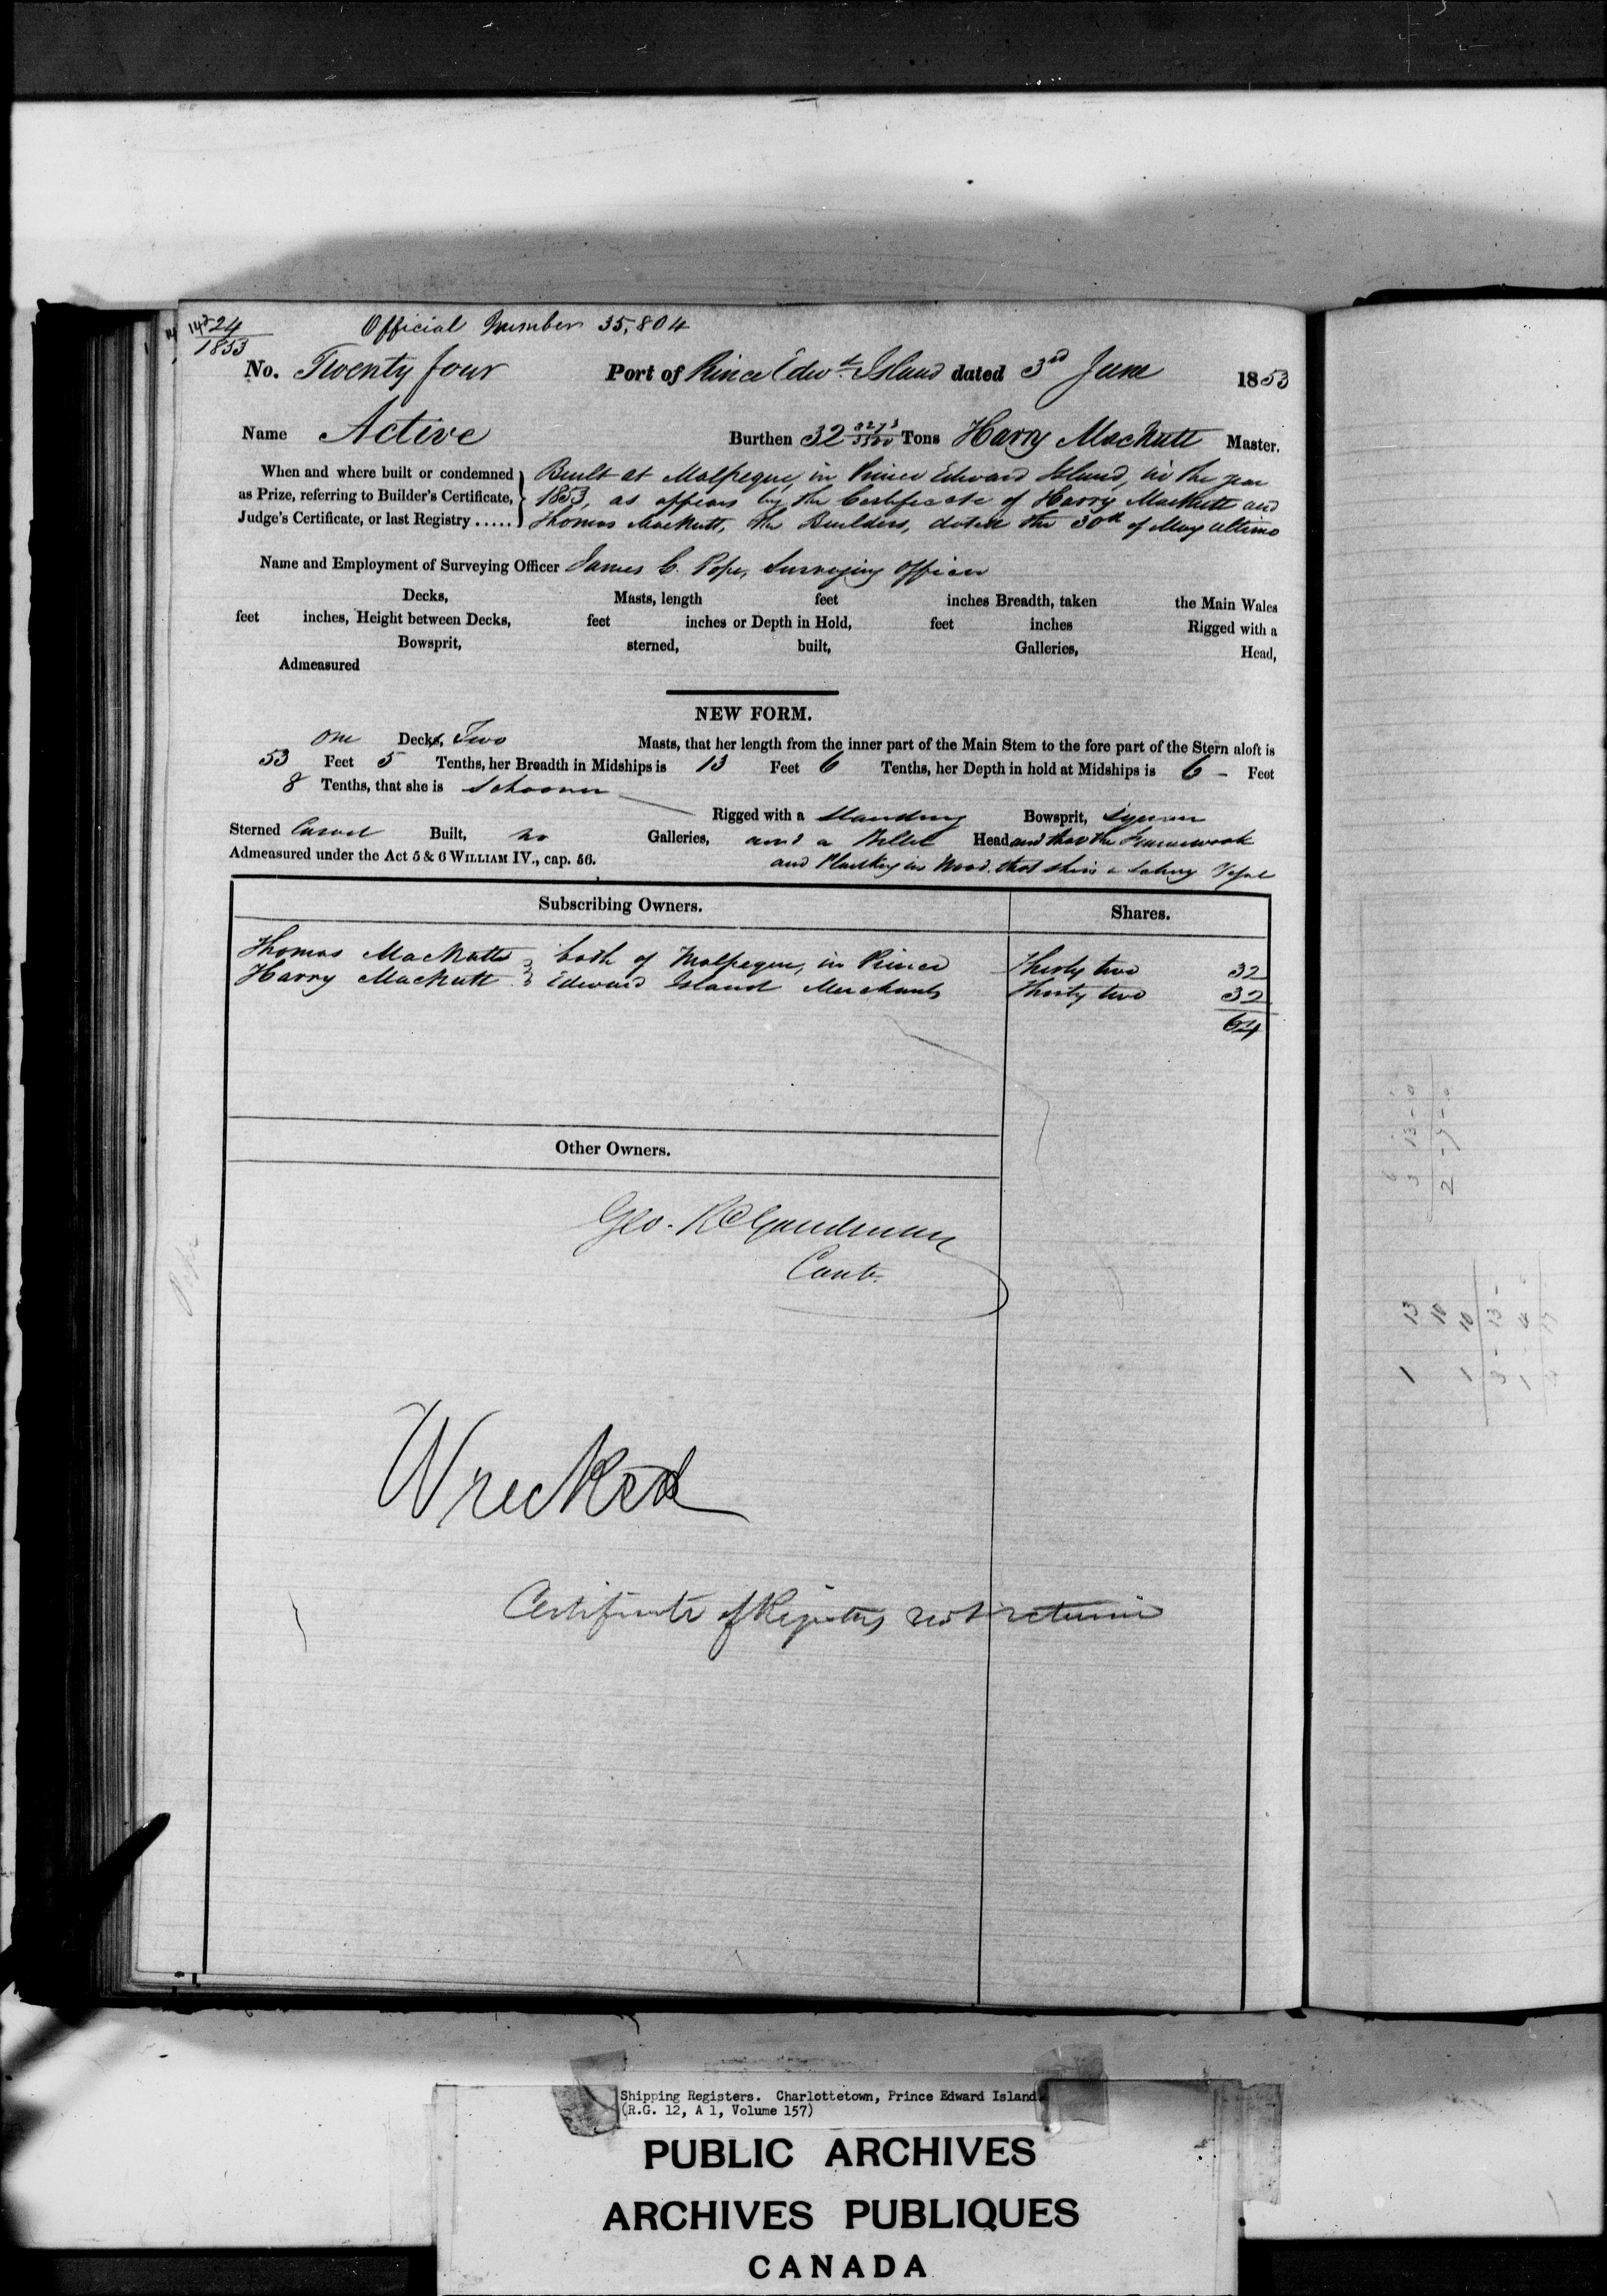 24
1853
Official Number 35,804
No. Twenty four Port of Prince Edwd. Island dated 3rd June 1853
Name Active Burthen 32 3273/3500 Tons Harry MacNutt Master.
When and where built or condemned as Prize, referring to Builder's Certificate, Judge's Certificate, or last Registry .....
Built at Malpeque, in Prince Edward Island, in the year
1853, as appears by the Certificate of Harry MacNutt and
Thomas MacNutt, the Builders, dated the 30th of May ultimo
Name and Employment of Surveying Officer James C. Pope, Surveying Officer
Decks, Masts, length feet inches Breadth, taken the Main Wales
feet inches, Height between Decks, feet inches or Depth in Hold, feet inches Rigged with a
Bowsprit, sterned, built, Galleries, Head,
Admeasured
NEW FORM.
One Decks, Two Masts, that her length from the inner part of the Main Stem to the fore part of the Stern aloft is
53 Feet 5 Tenths, her Breadth in Midships is 13 Feet 6 Tenths, her Depth in hold at Midships is 6 - Feet
8 Tenths, that she is Schooner Rigged with a Standing Bowsprit, Square
Sterned Carvel Built, no Galleries, and a Billet Head and that the Framework
Admeasured under the Act 5 & 6 WILLIAM IV., cap. 56. and Planking is Wood. that she is a Sailing Vessel
Subscribing Owners. Shares.
Thomas MacNutt } both of Malpeque, in Prince Thirty two 32
Harry MacNutt } Edward Island Merchants Thirty two 32
64
Other Owners.
Geo. R Goodman
Contr.
Wrecked
Certificate of Registry not returned
Shipping Registers. Charlottetown, Prince Edward Island
(R.G. 12, A 1, Volume 157)
PUBLIC ARCHIVES
ARCHIVES PUBLIQUES
CANADA